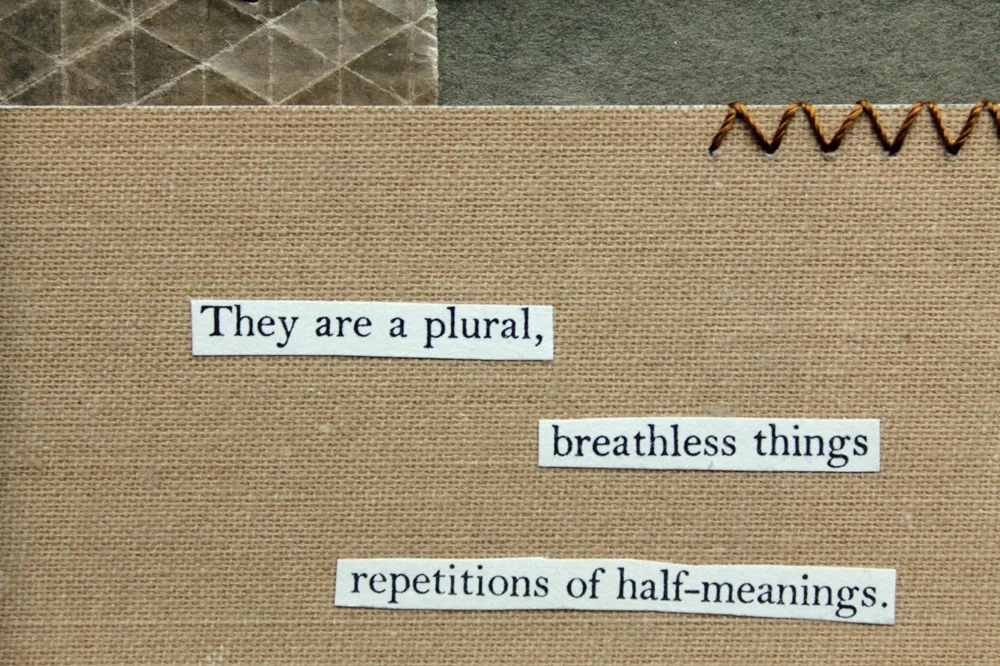 They are a plural,
breathless things
repetitions of half-meanings.